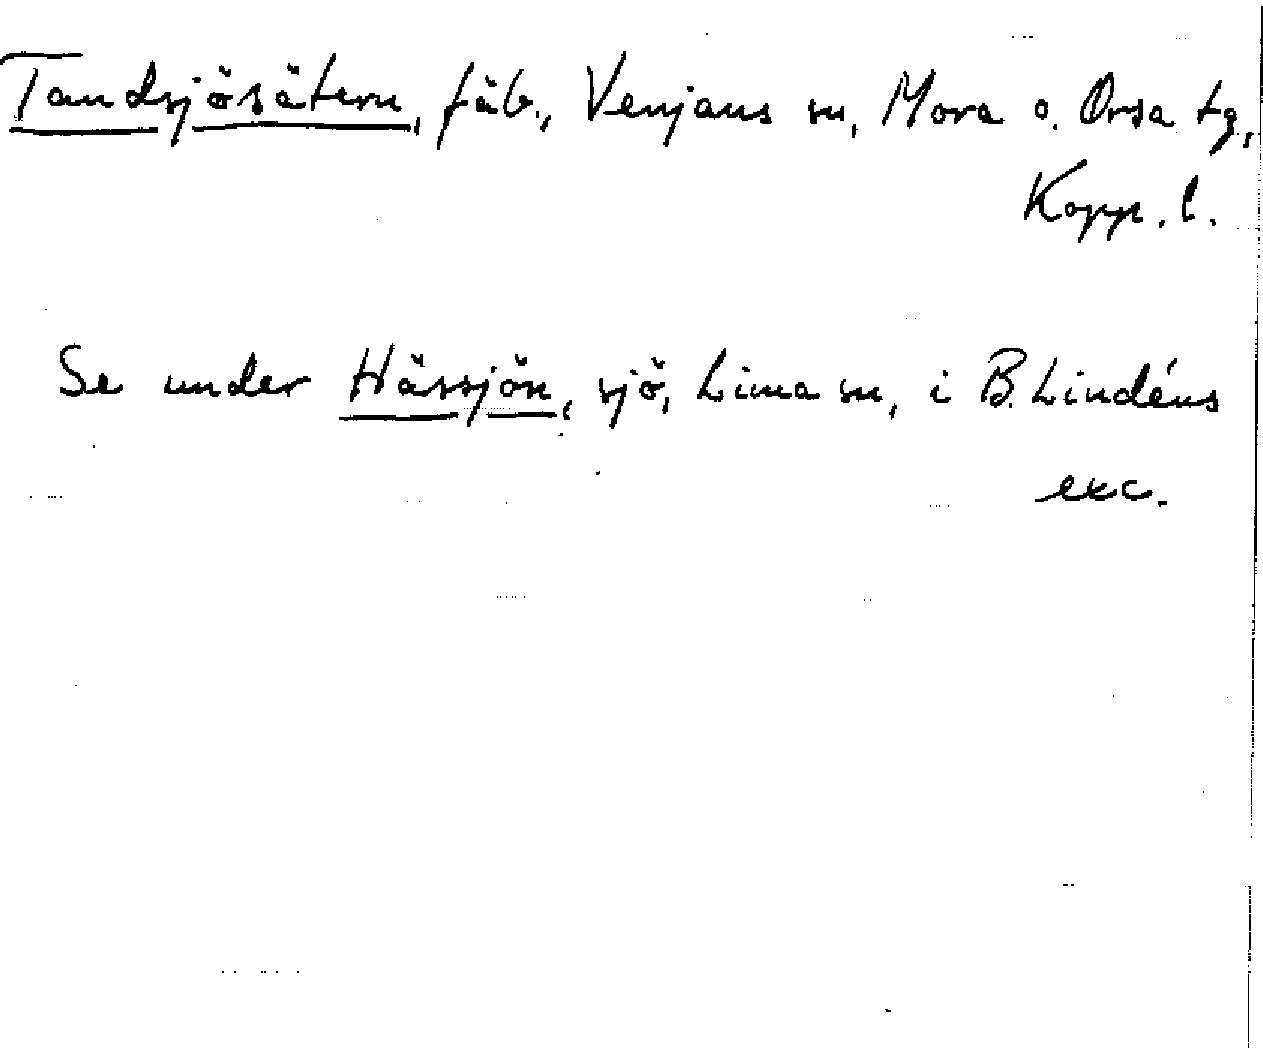 Tandsjösätern, fäb., Venjans sn, Mora o. Orsa tg,
Kopp. l.
Se under Hässjön, sjö, Lima sn, i B. Lindéns
exc.